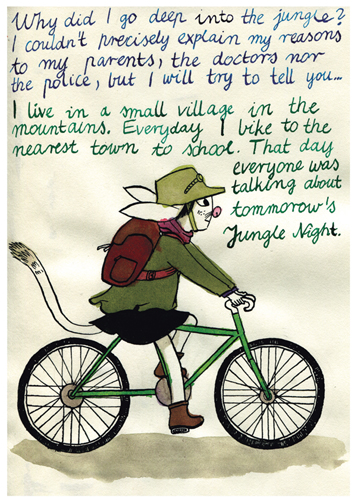 Why did I go deep into the jungle?
I couldn't precisely explain my reasons
to my parents, the doctors nor
the police, but I will try to tell you...
I live in a small village in the
mountains. Everyday I bike to the
nearest town to school. That day
everyone was
talking about
tommorow's
Jungle Night.